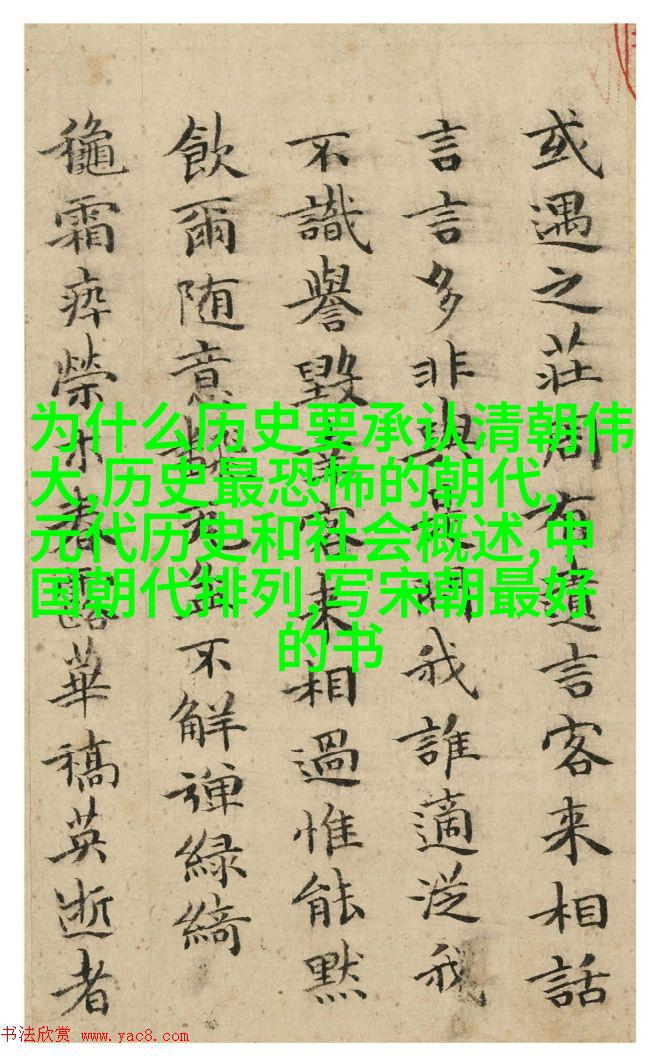 或遇之莊周有遺言客来相話
言言多非與我誰適従我
不識譽毀客来相過惟能默
飲爾随意不解彈緑綺
龝霜瘁榮木春露華稿英逝者
为什么历史要承认清朝伟
大,历史最恐怖的朝代,
元代历史和社会概述,中
国朝代排列,写宋朝最好
的书
书法欣赏 www.yac8.com